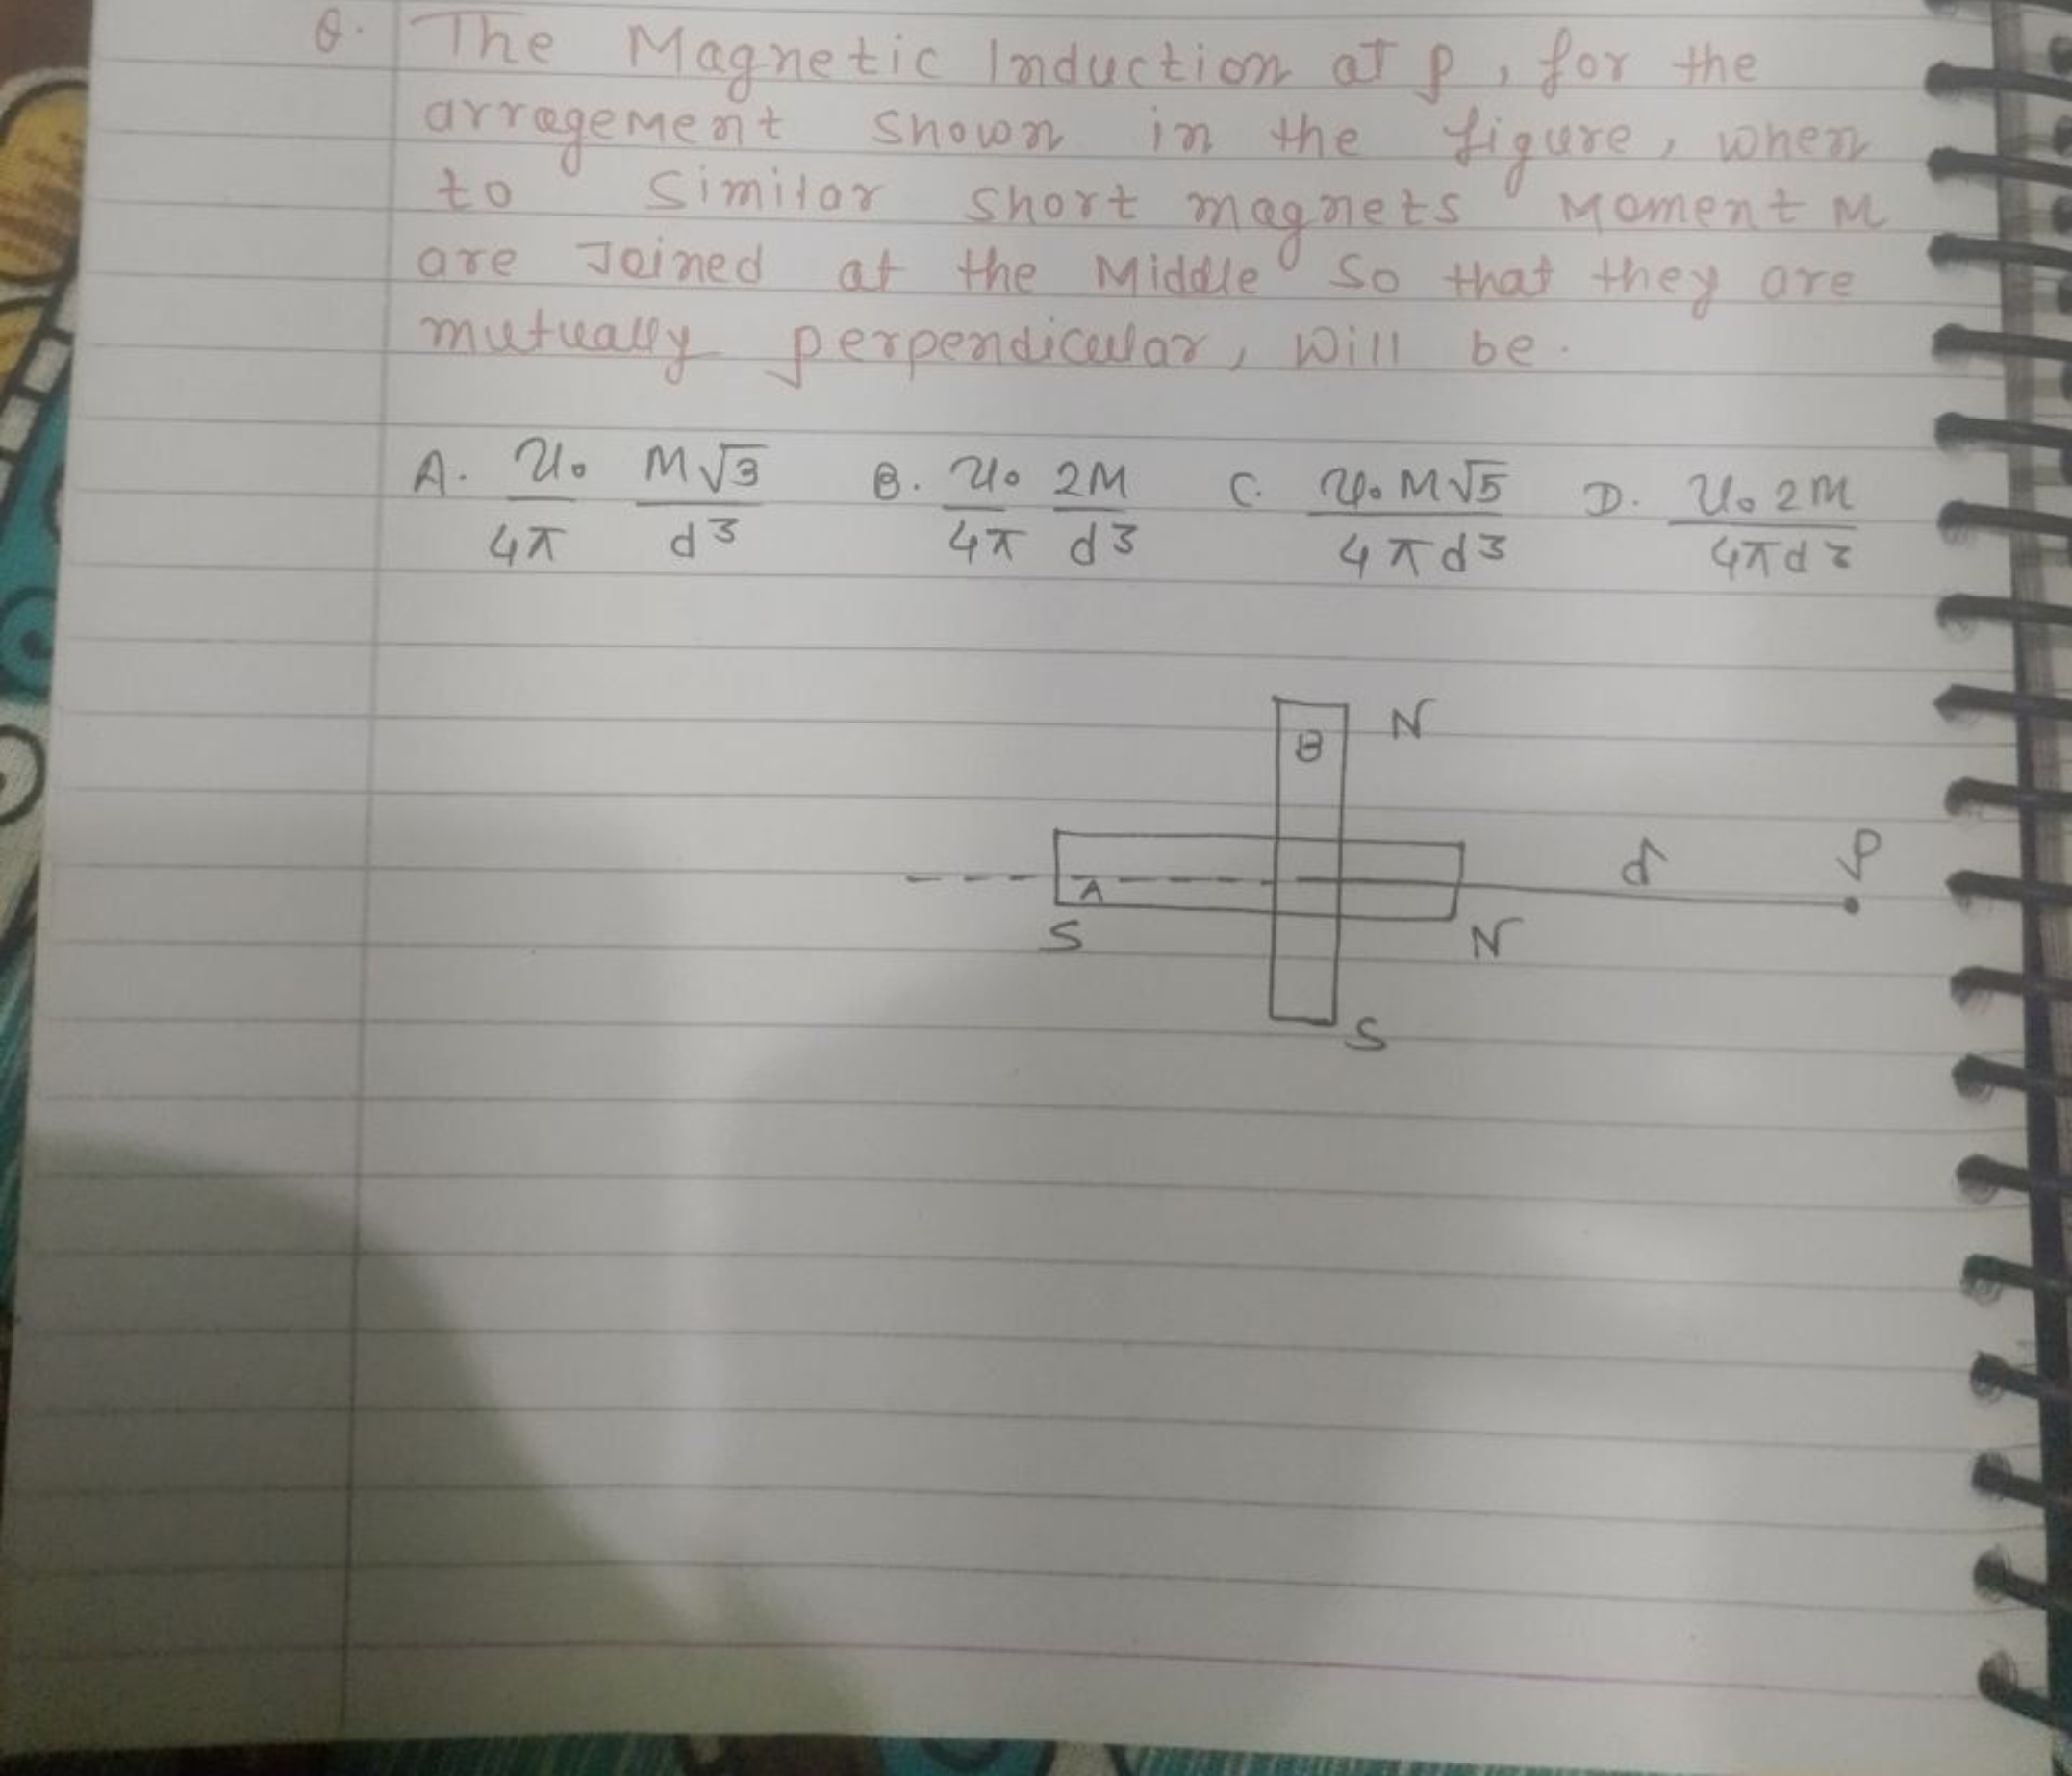 Q. The Magnetic Induction at P, for the
arragement shown in the figure, when
to similar short magnets Moment M
are Joined at the Middle so that they are
mutually perpendicular, will be.
A. μ₀/4π M√3/d³ B. μ₀/4π 2M/d³ C. μ₀M√5/4πd³ D. μ₀2M/4πd³
N
B
d P
A
S N
S